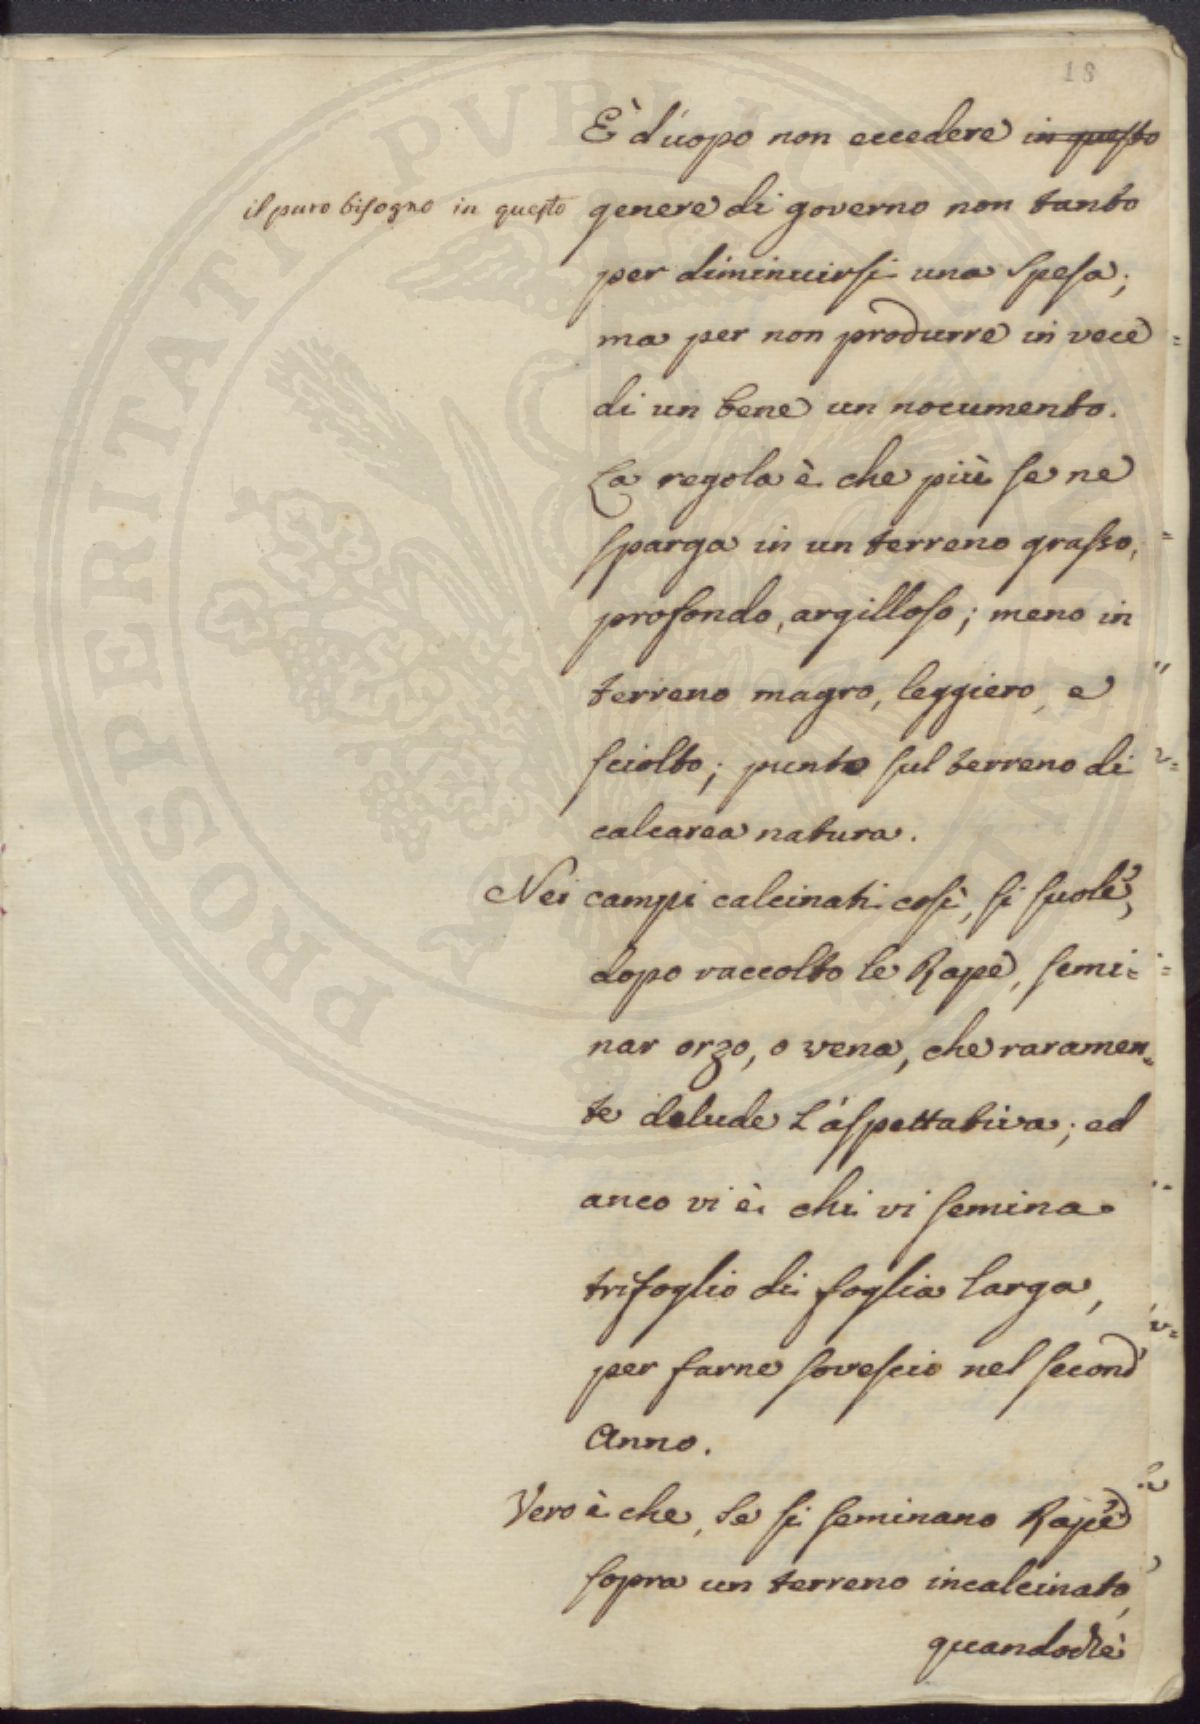 18
È d'uopo non eccedere in questo
il puro bisogno in questo genere di governo non tanto
per diminuirsi una spesa;
ma per non produrre in vece
di un bene un nocumento.
La regola è che più se ne
sparga in un terreno grasso,
profondo, argilloso; meno in
terreno magro, leggiero, e
sciolto; punto sul terreno di
calcarea natura.
Nei campi calcinati così, si suole,
dopo raccolto le Rape, semi=
nar orzo, o vena, che raramen=
te delude l'aspettativa; ed
anco vi è chi vi semina
trifoglio di foglia larga,
per farne sovescio nel second'
Anno.
Vero è che, se si seminano Rape
sopra un terreno incalcinato,
quandochè
PROSPERITATI PVBLICAE